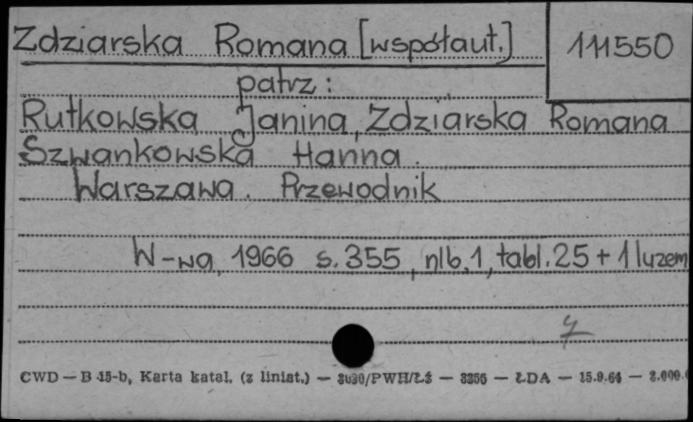 Zdziarska Romana [współaut.] 111550
patrz:
Rutkowska Janina, Zdziarska Romana
Szwankowska Hanna.
Warszawa. Przewodnik
W-wa, 1966 s. 355, nlb. 1, tabl. 25 + 1 luzem
CWD — B 15-b, Karta katal. (z liniat.) — — ŁDA —